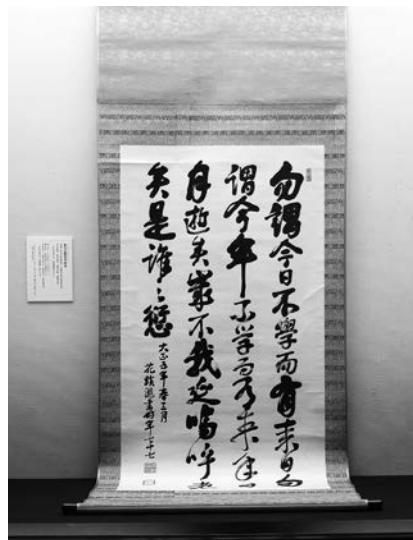 勿謂今日不學而有来日勿
謂今年不学而有来年日
月逝矣歳不我延嗚呼老
矣是誰之愆
大正五年春三月
花蹊瀧書時年七十七